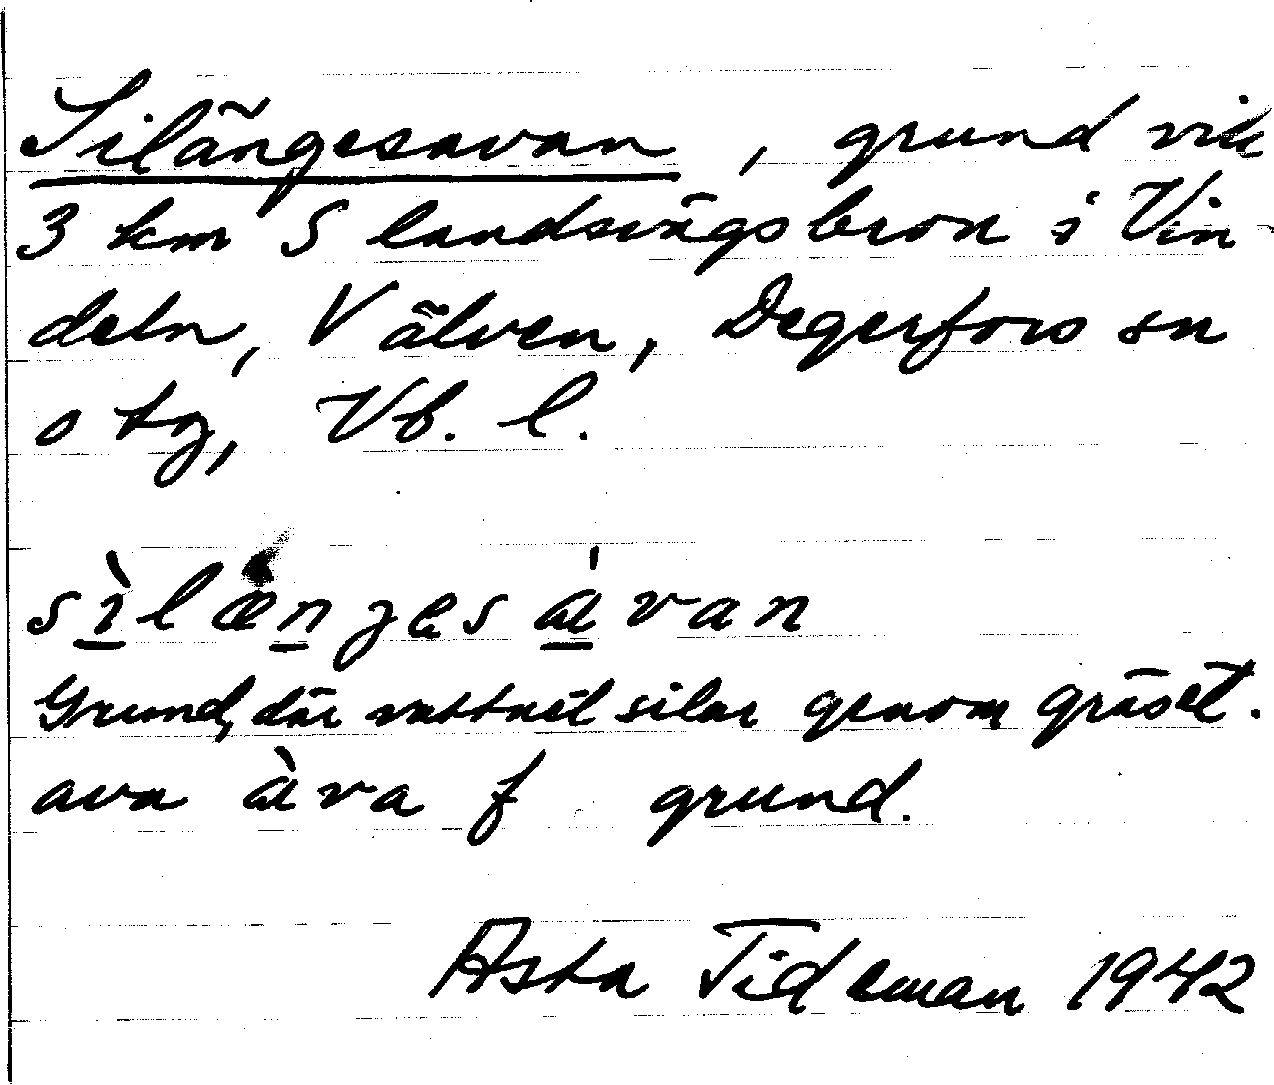 Silängesavan, grund vid
3 km S landsvägsbron i Vin-
deln, V älven, Degerfors sn
o tg, Vb. l.
sìlænʒesávan
Grund, där vattnet silar genom gräset.
ava àva f grund.
Asta Tideman 1942